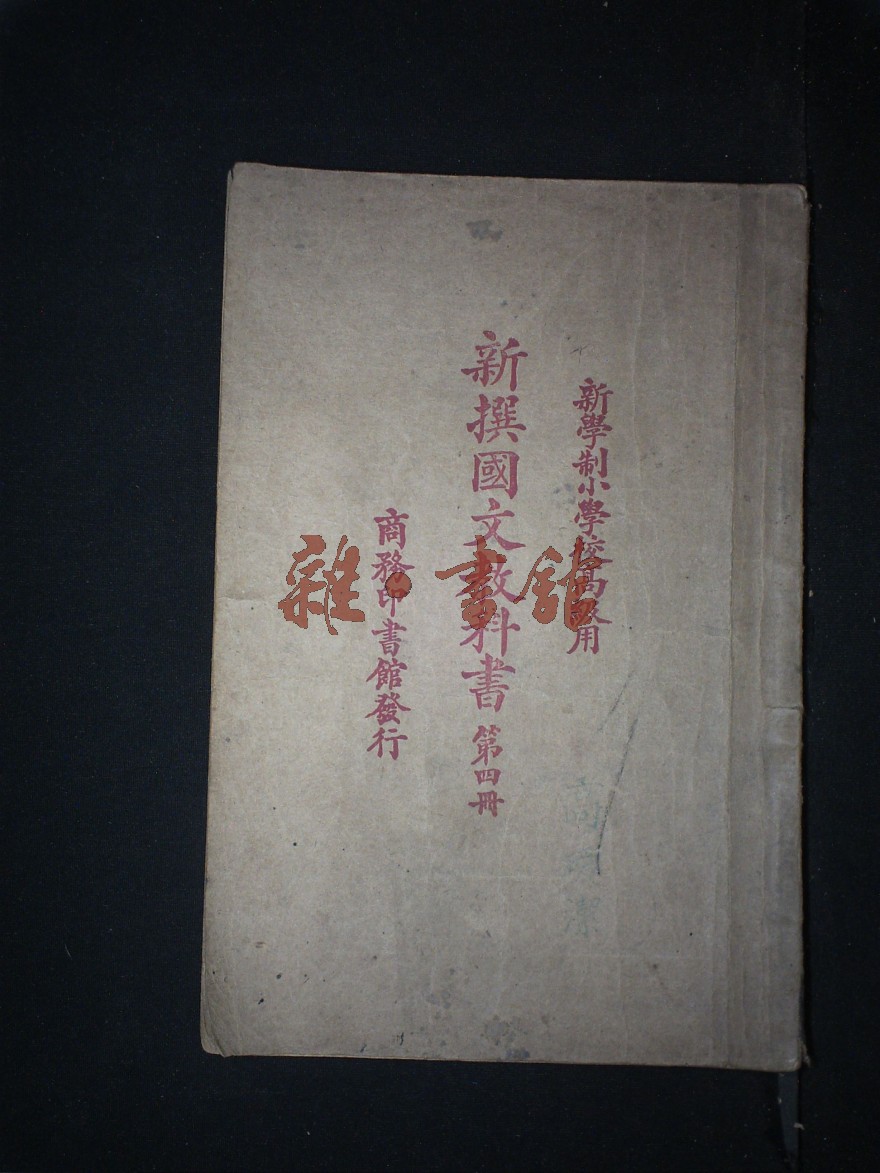 新學制小學校高級用
新撰國文教科書 第四冊
商務印書館發行
雜·書館